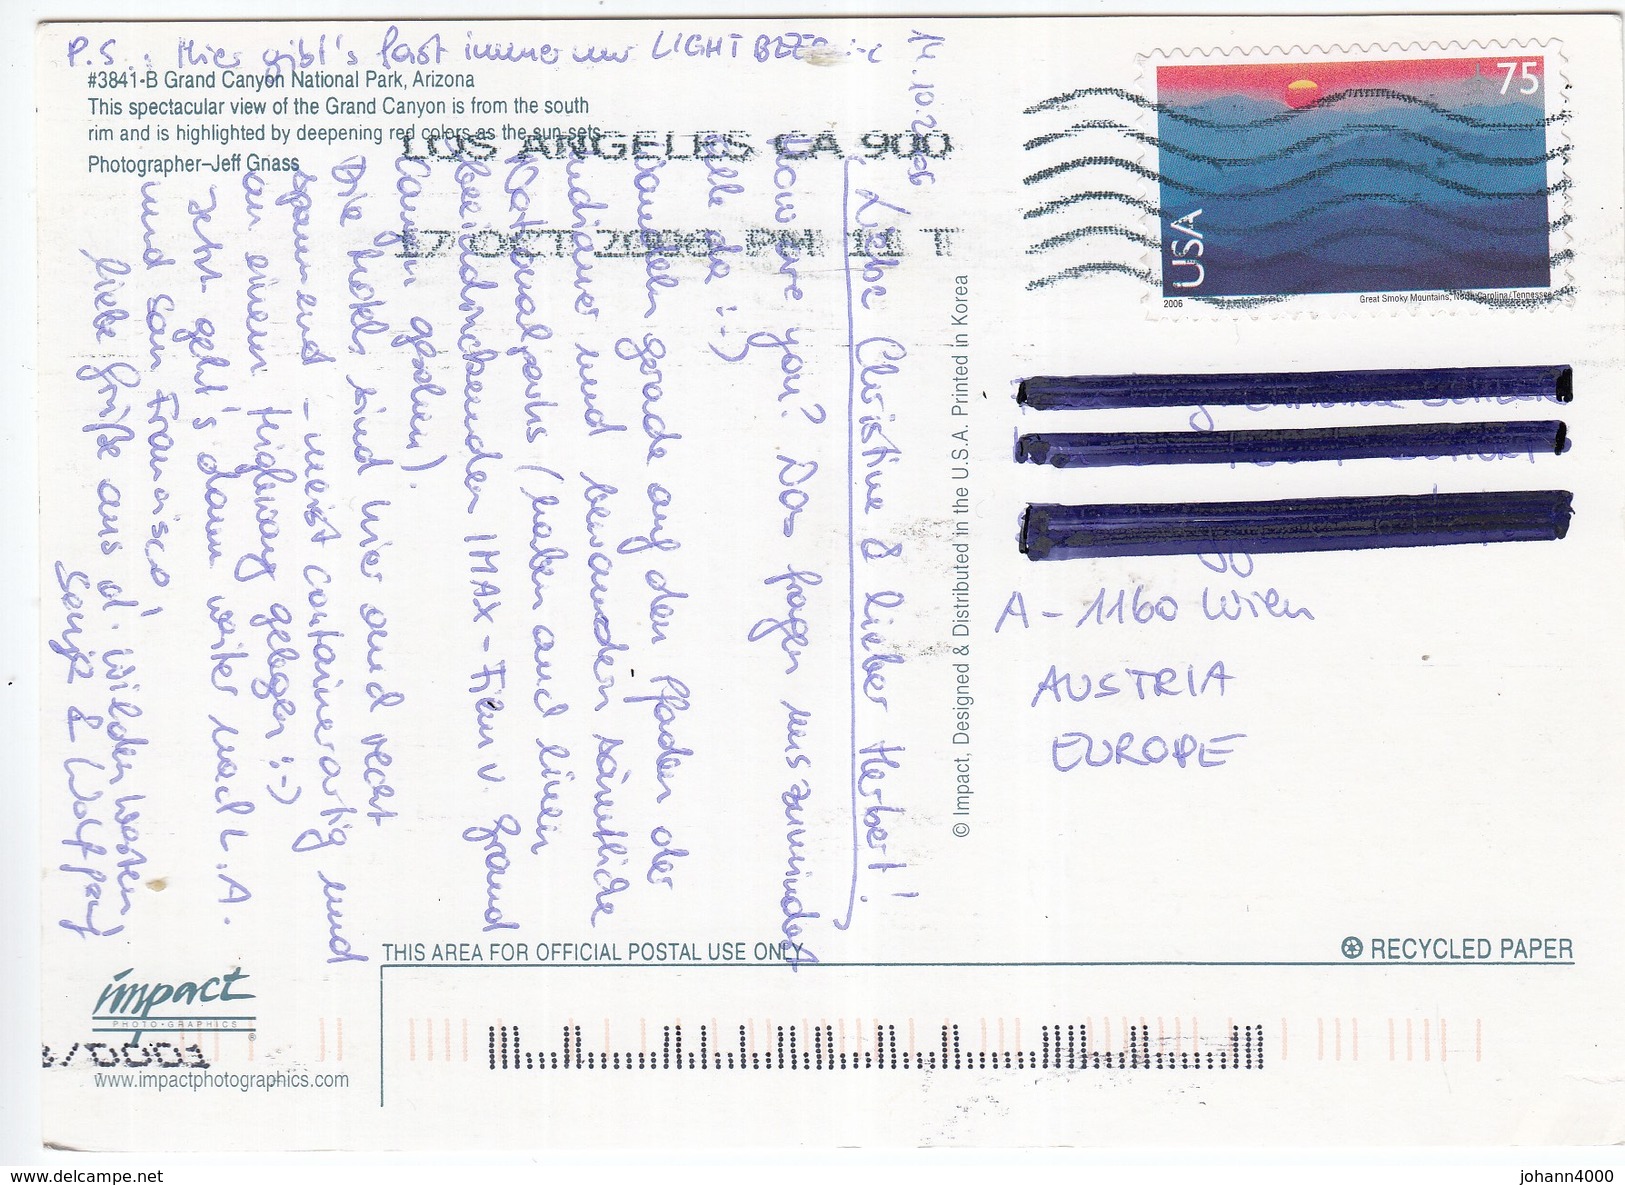 P.S.: Hier gibt's fast immer nur LIGHT BEER :-(
#3841-B Grand Canyon National Park, Arizona
This spectacular view of the Grand Canyon is from the south
rim and is highlighted by deepening red colors as the sun sets.
Photographer–Jeff Gnass
LOS ANGELES CA 900
17 OCT 2006 PM 11 T
14.10.2006
Liebe Christine & lieber Herbert!
How are you? Das fragen uns zumindest
alle da :-)
Wandeln gerade auf den Pfaden der
Indianer und bewundern sämtliche
Nationalparks (haben auch einen
beeindruckenden IMAX-Film v. Grand
Canyon gesehen).
Die Hotels sind hier auch recht
spannend - meist containerartig und
an einem Highway gelegen :-)
Jetzt geht's dann weiter nach L.A.
und San Francisco!
Liebe Grüße aus d. wilden Westen
Sonja & Wolfgang
© Impact, Designed & Distributed in the U.S.A. Printed in Korea
75
USA
2006
Great Smoky Mountains, North Carolina/Tennessee
A - 1160 Wien
AUSTRIA
EUROPE
THIS AREA FOR OFFICIAL POSTAL USE ONLY
RECYCLED PAPER
impact
PHOTO·GRAPHICS
/0001
www.impactphotographics.com
www.delcampe.net
johann4000